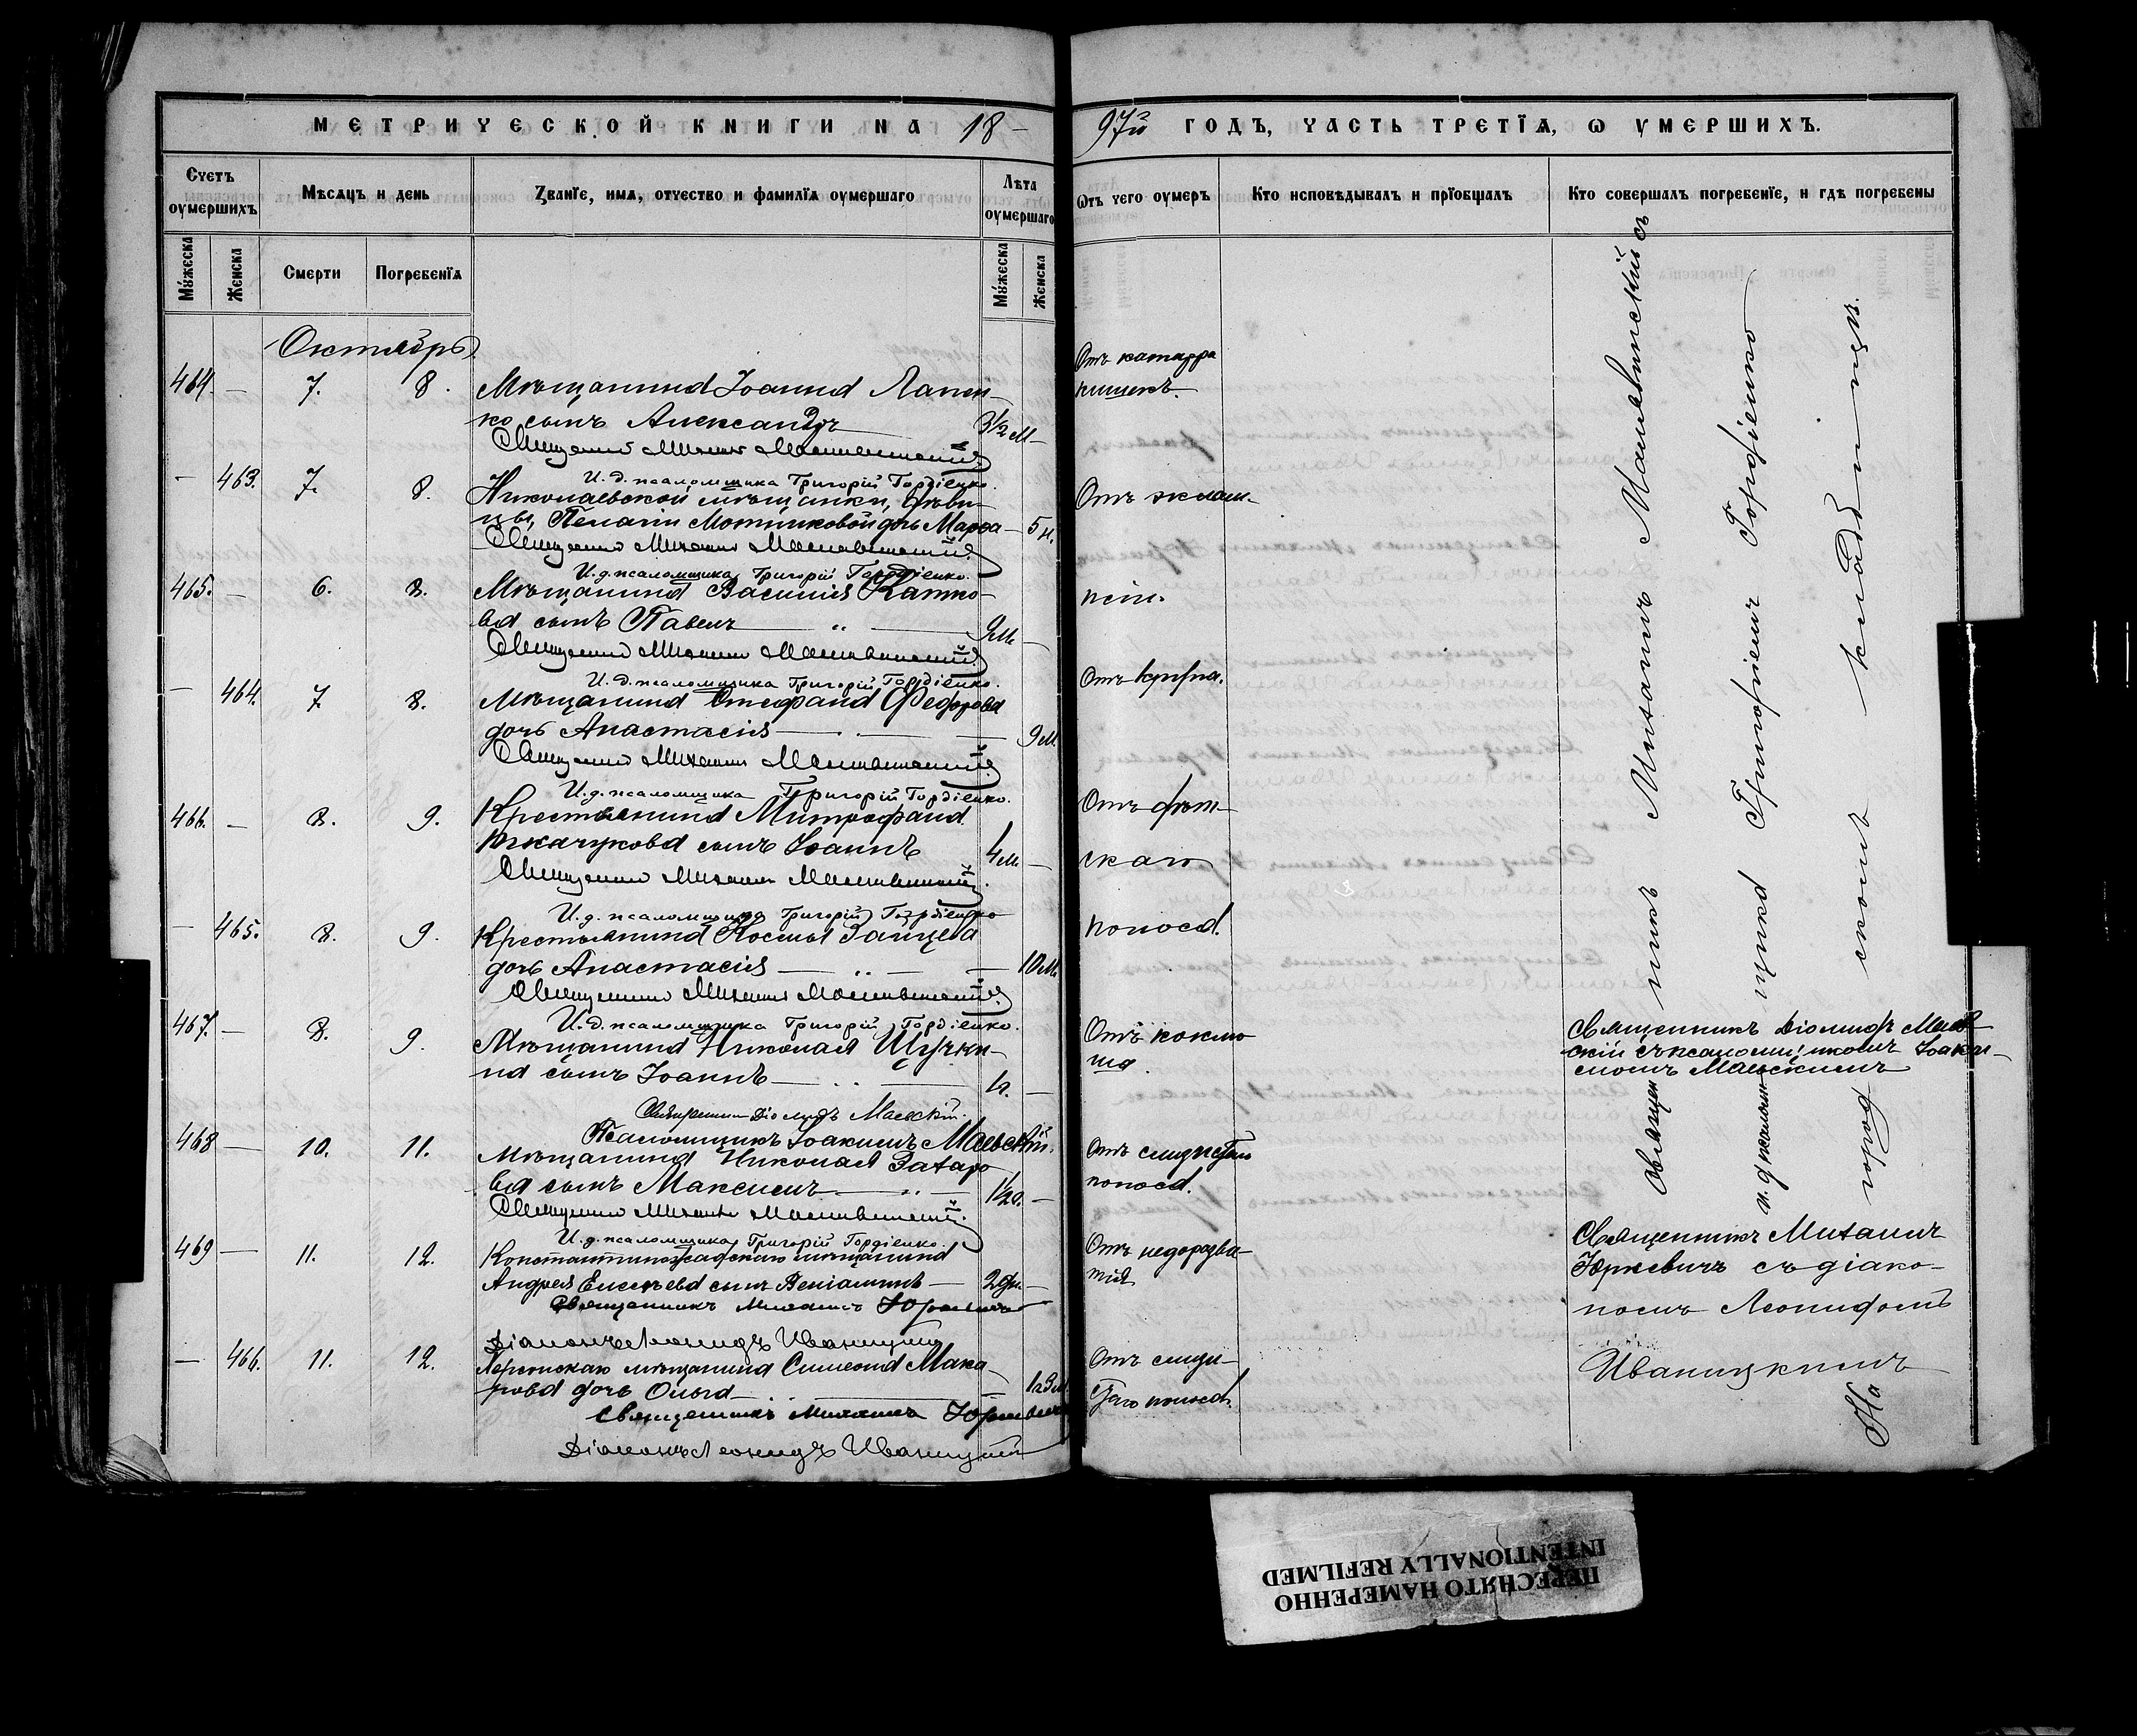 МЕТРИЧЕСКОЙ КНИГИ НА 18
97й ГОДЪ, ЧАСТЬ ТРЕТІЯ, Ѡ УМЕРШИХЪ.
Счетъ оумершихъ
Мѣсяцъ и день
Званїе, имя, отчество и фамилїя оумершаго
Лѣта оумершаго
Ѿтъ чего оумеръ
Кто исповѣдывалъ и прїобщалъ
Кто совершалъ погребенїе, и гдѣ погребены
Мужеска
Женска
Смерти
Погребенїя
Мужеска
Женска
Октябрь
464. — 7. 8. Мѣщанина Іоанна Лапен-
ко сынъ Александръ 3½ м —
Отъ катарра
кишекъ.
Священникъ Михаилъ
И. д. псаломщика Григорій Гордіенко.
— 463. 7. 8. Николаевской мѣщанки, дѣви-
цы, Пелагіи дочь Марѳа — 5 н.
Отъ эклам-
Священникъ Михаилъ
И. д. псаломщика Григорій Гордіенко.
465. — 6. 8. Мѣщанина Василія
ва сынъ Павелъ 9 м. —
псіи.
Священникъ Михаилъ
И. д. псаломщика Григорій Гордіенко.
— 464. 7. 8. Мѣщанина Стефана Федорова
дочь Анастасія — 9 м.
Отъ крупа.
Священникъ Михаилъ
И. д. псаломщика Григорій Гордіенко.
466. — 8. 9. Крестьянина Митрофана
Ткачукова сынъ Іоаннъ 4 м. —
Отъ дѣт-
скаго
Священникъ Михаилъ
И. д. псаломщика Григорій Гордіенко
— 465. 8. 9. Крестьянина Космы Зайцева
дочь Анастасія — 10 м.
поноса.
Священникъ Михаилъ
И. д. псаломщика Григорій Гордіенко.
467. — 8. 9. Мѣщанина Николая Щучки-
на сынъ Іоаннъ 1 г. —
Отъ коклю
ша.
Священникъ Діомидъ Маев-
скій съ псаломщикомъ Іоаки-
момъ Маевскимъ
Священникъ Діомидъ Маевскій.
Псаломщикъ Іоакимъ Маевскій.
468 — 10. 11. Мѣщанина Николая Захаро
ва сынъ Максимъ 1½ —
поноса.
Священникъ Михаилъ
И. д. псаломщика Григорій Гордіенко.
469 — 11. 12. мѣщанина
Андрея Елисѣева сынъ Веніаминъ — 2 дн. —
Отъ недоразви-
тія
Священникъ Михаилъ
Юркевичъ съ діако-
номъ Леонидомъ
Иваницкимъ
Священникъ Михаилъ Юркевичъ
Діаконъ Леонидъ Иваницкій
— 466. 11. 12. Херсонскаго мѣщанина Симеона Мака-
рова дочь Ольга — 1 г 3 м.
Отъ слизи-
стаго поноса.
Священникъ Михаилъ Юркевичъ
Діаконъ Леонидъ Иваницкій
Священникъ Михаилъ съ
и. д. псаломщика Григоріемъ Гордіенко
На городскомъ кладбищѣ.
ПЕРЕСНЯТО НАМЕРЕННО
INTENTIONALLY REFILMED